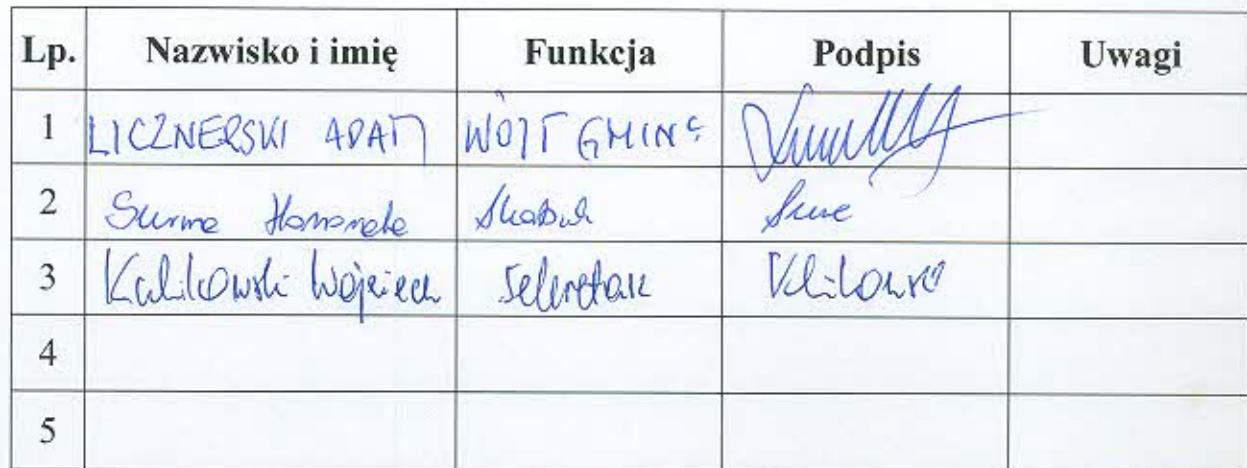 Lp. Nazwisko i imię Funkcja Podpis Uwagi
1 LICZNERSKI ADAM WÓJT GMINY
2 Surma Skarbnik
3 Kalikowski Wojciech Sekretarz
4
5